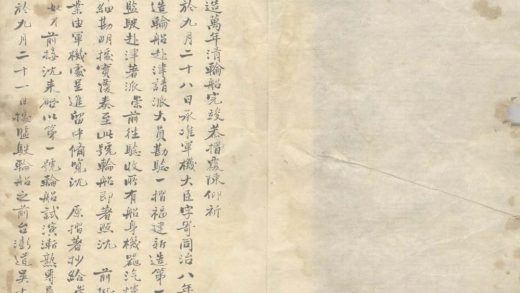 造萬年清輪船完竣恭摺覆陳仰祈
於九月二十八日承准軍機大臣字寄同治八年
造輪船赴津請派大員勘驗一摺福建新造第一
監駛赴津著派崇前往驗收所有船身機器汽爐
細勘明據實覆奏至此號輪船即著照沈 前
業由軍機處呈進留中備覽沈 原摺著抄給
如 前接沈來函以第一號輪船試演漸熟
於九月二十一日據監駛輪船之前台澎道吳大